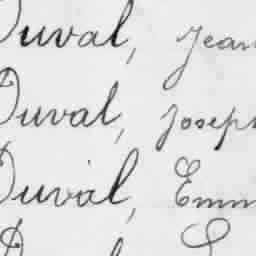 Duval, Jean
Duval, Joseph
Duval, Emm